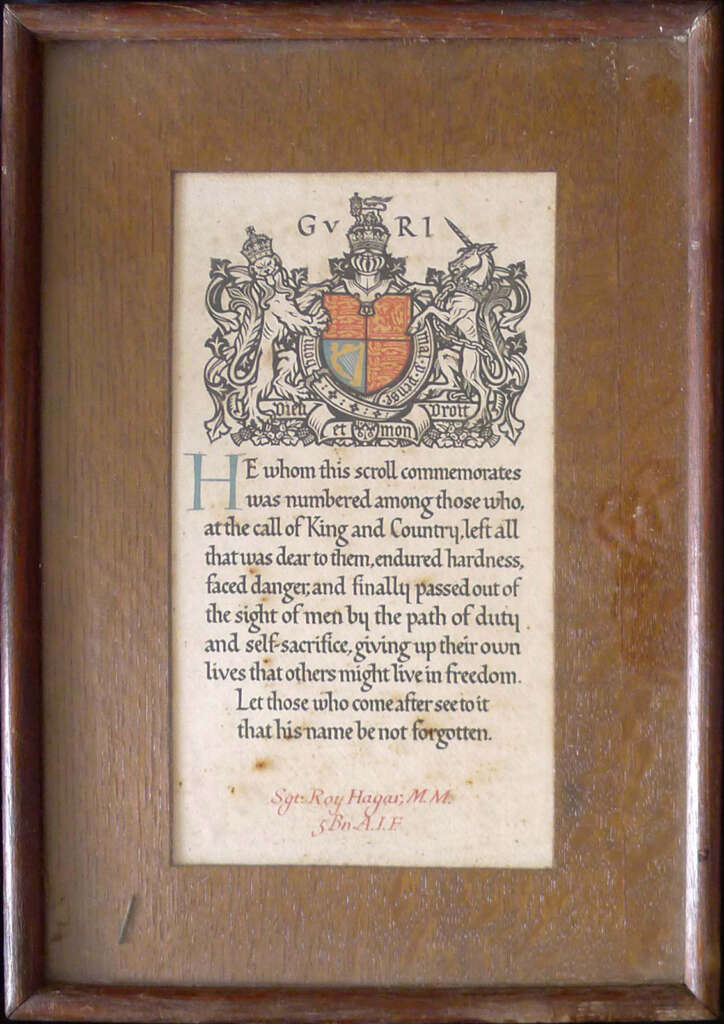 GV RI
Honi soit qui mal y pense
Dieu et mon Droit
HE whom this scroll commemorates
was numbered among those who,
at the call of King and Country, left all
that was dear to them, endured hardness,
faced danger, and finally passed out of
the sight of men by the path of duty
and self-sacrifice, giving up their own
lives that others might live in freedom.
Let those who come after see to it
that his name be not forgotten.
Sgt. Roy Hagar, M.M.
5 Bn A.I.F.